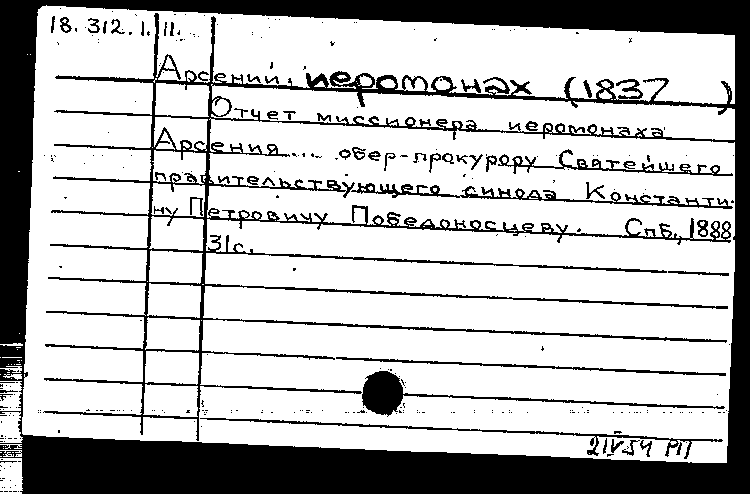 18. 312. 1. 11.
Арсений, иеромонах (1837 )
Отчет миссионера иеромонаха
Арсения... обер-прокурору Святейшего
правительствующего синода Константи-
ну Петровичу Победоносцеву. Спб., 1888.
31с.
21V54 РП